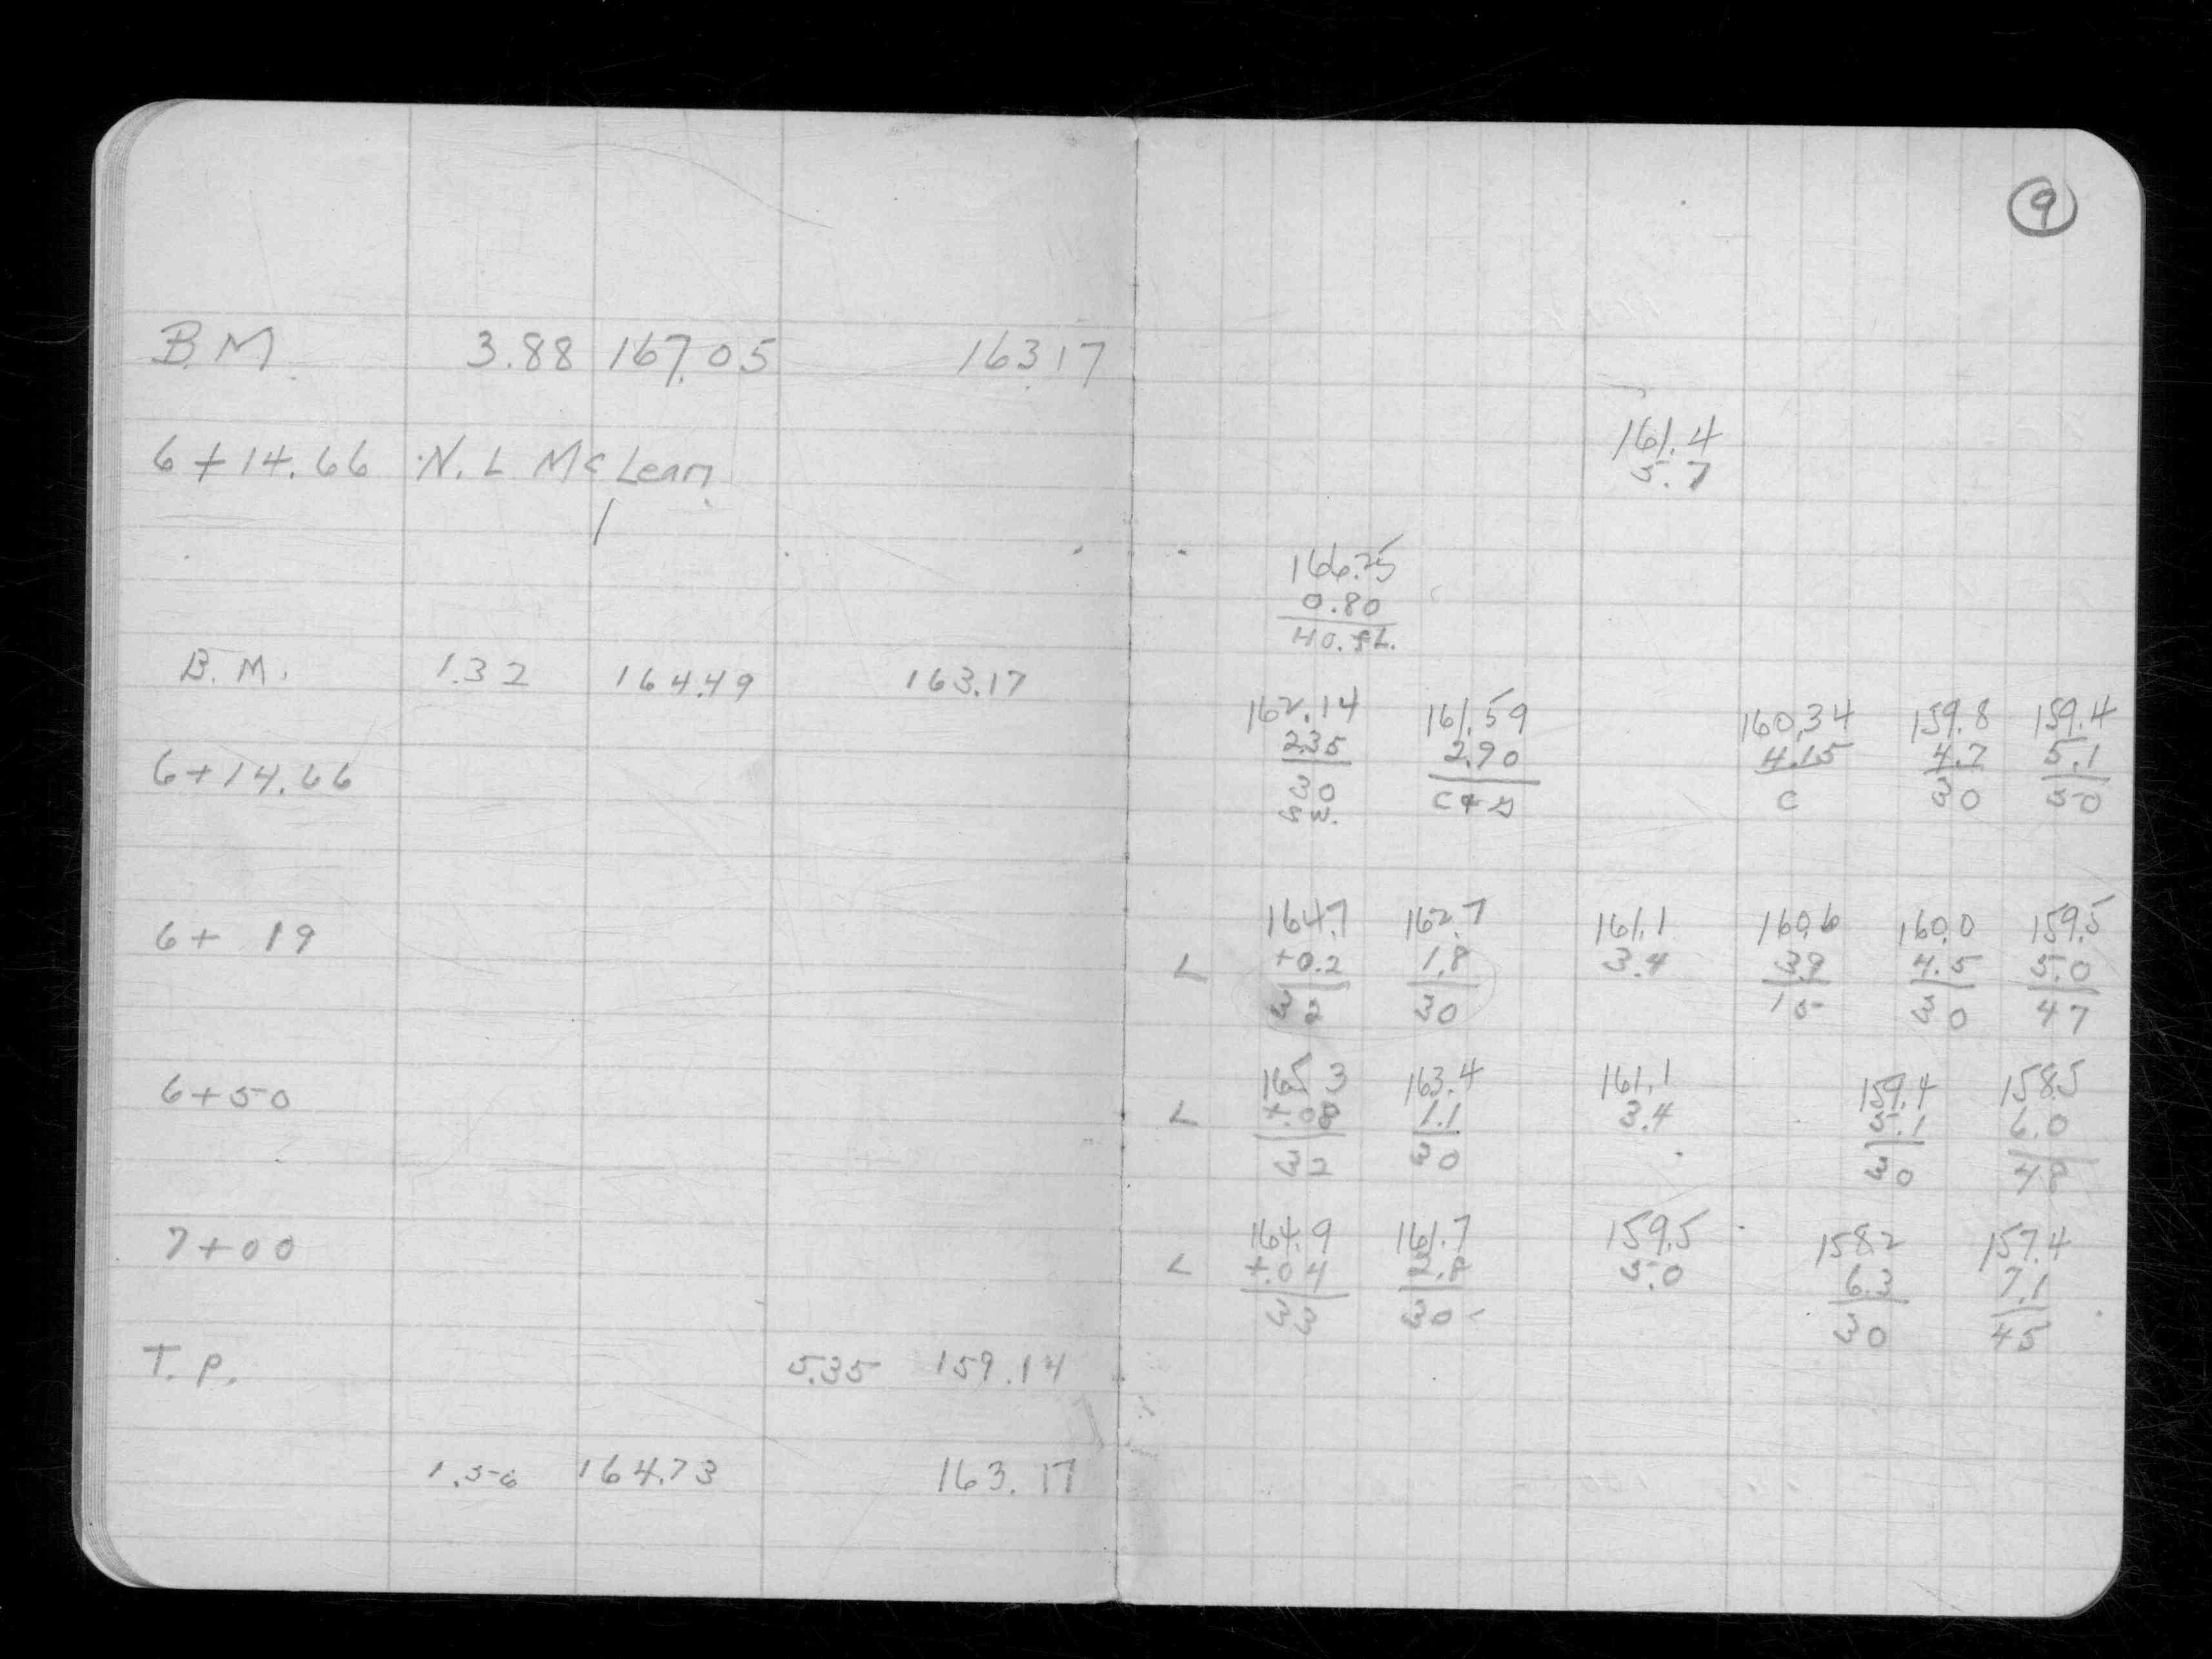 9
B.M. 3.88 167.05 163.17
6+14.66 N.L McLean
161.4
5.7
166.25
0.80
40.
B.M. 1.32 164.49 163.17
162.14 161.59 160.34 159.8 159.4
6+14.66 2.35 2.90 4.15 4.7 5.1
30 C C 30 50
164.7 162.7 161.1 160.6 160.0 159.5
6+ 19 L +0.2 1.8 3.4 3.9 4.5 5.0
32 30 15 30 47
165.3 163.4 161.1 159.4 158.5
6+50 L +.08 1.1 3.4 5.1 6.0
32 30 30 48
164.9 161.7 159.5 158.2 157.4
7+00 L +.04 2.8 5.0 6.3 7.1
33 30 30 45
T.P. 5.35 159.14
1.56 164.73 163.17